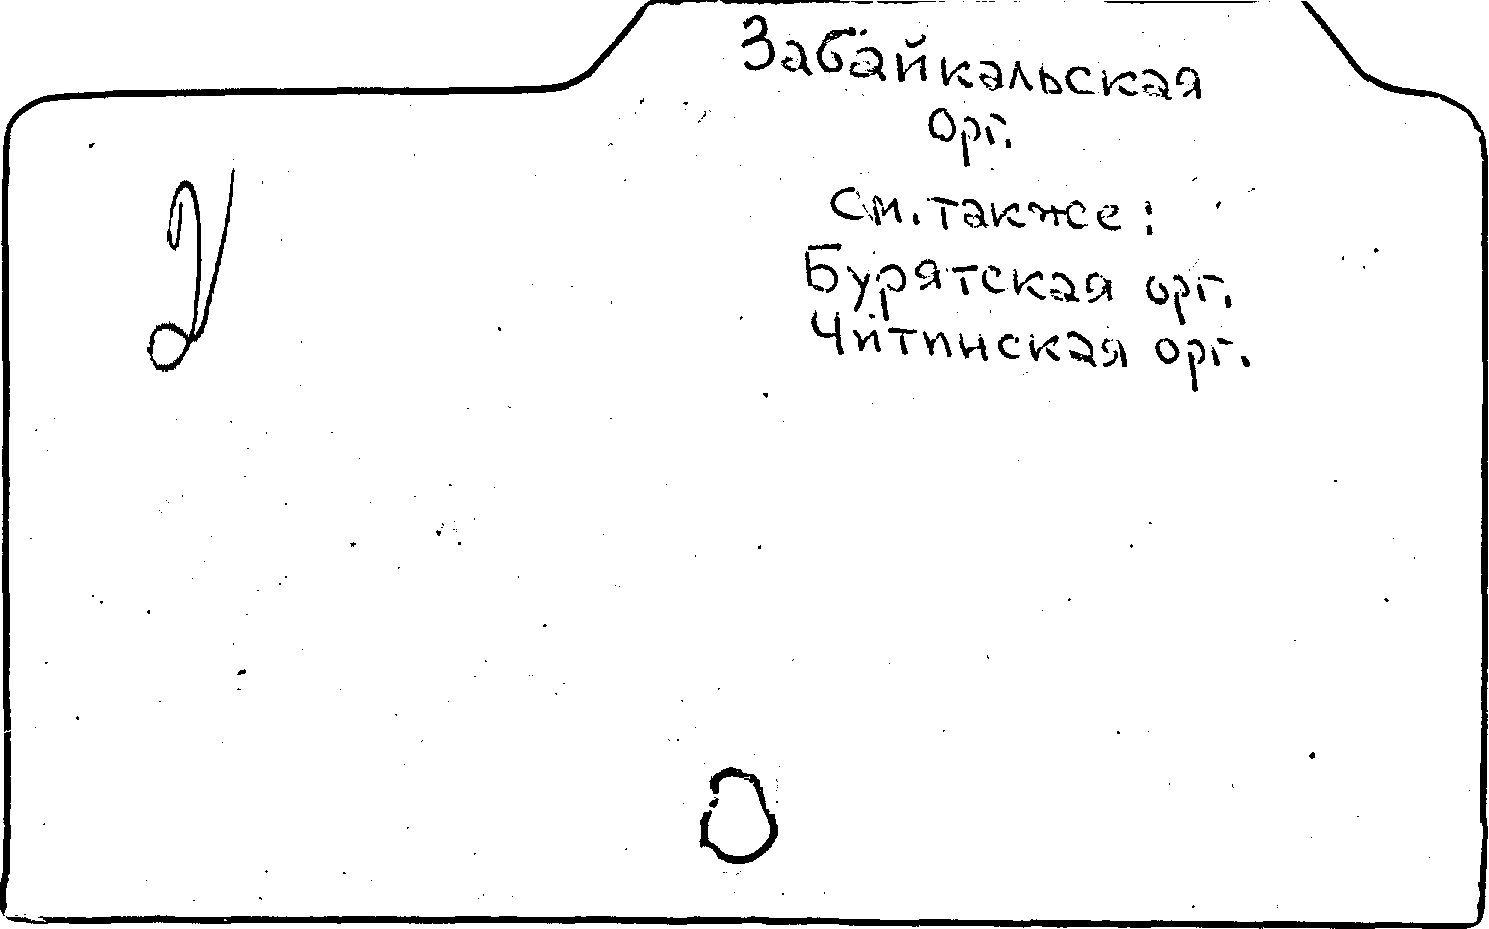 Забайкальская
орг.
см. также:
Бурятская орг.
Читинская орг.